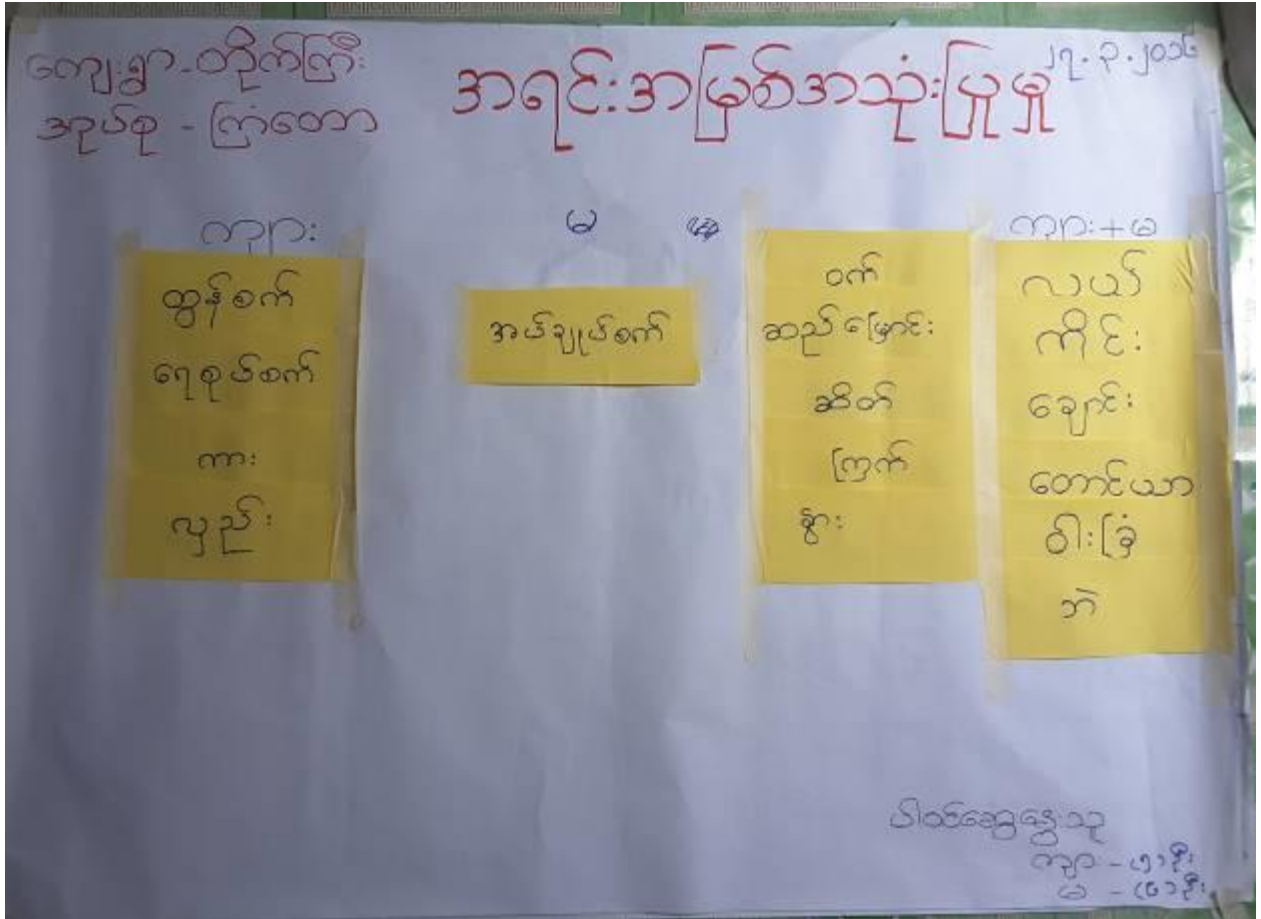 ကျေးရွာ-တိုက်ကြီး
အုပ်စု - ကြံတော
အရင်းအမြစ်အသုံးပြုမှု
၂၇.၃.၂၀၁၆
ကျား
ထွန်စက်
ရေစုပ်စက်
ကား
လှည်း
မ
အပ်ချုပ်စက်
ဝက်
ဆည်မြောင်း
ဆိတ်
ကြက်
နွား
ကျား+မ
လယ်
ကိုင်း
ချောင်း
တောင်ယာ
ဝါးခြံ
ဘဲ
ပါဝင်ဆွေးနွေးသူ
ကျား -
မ -